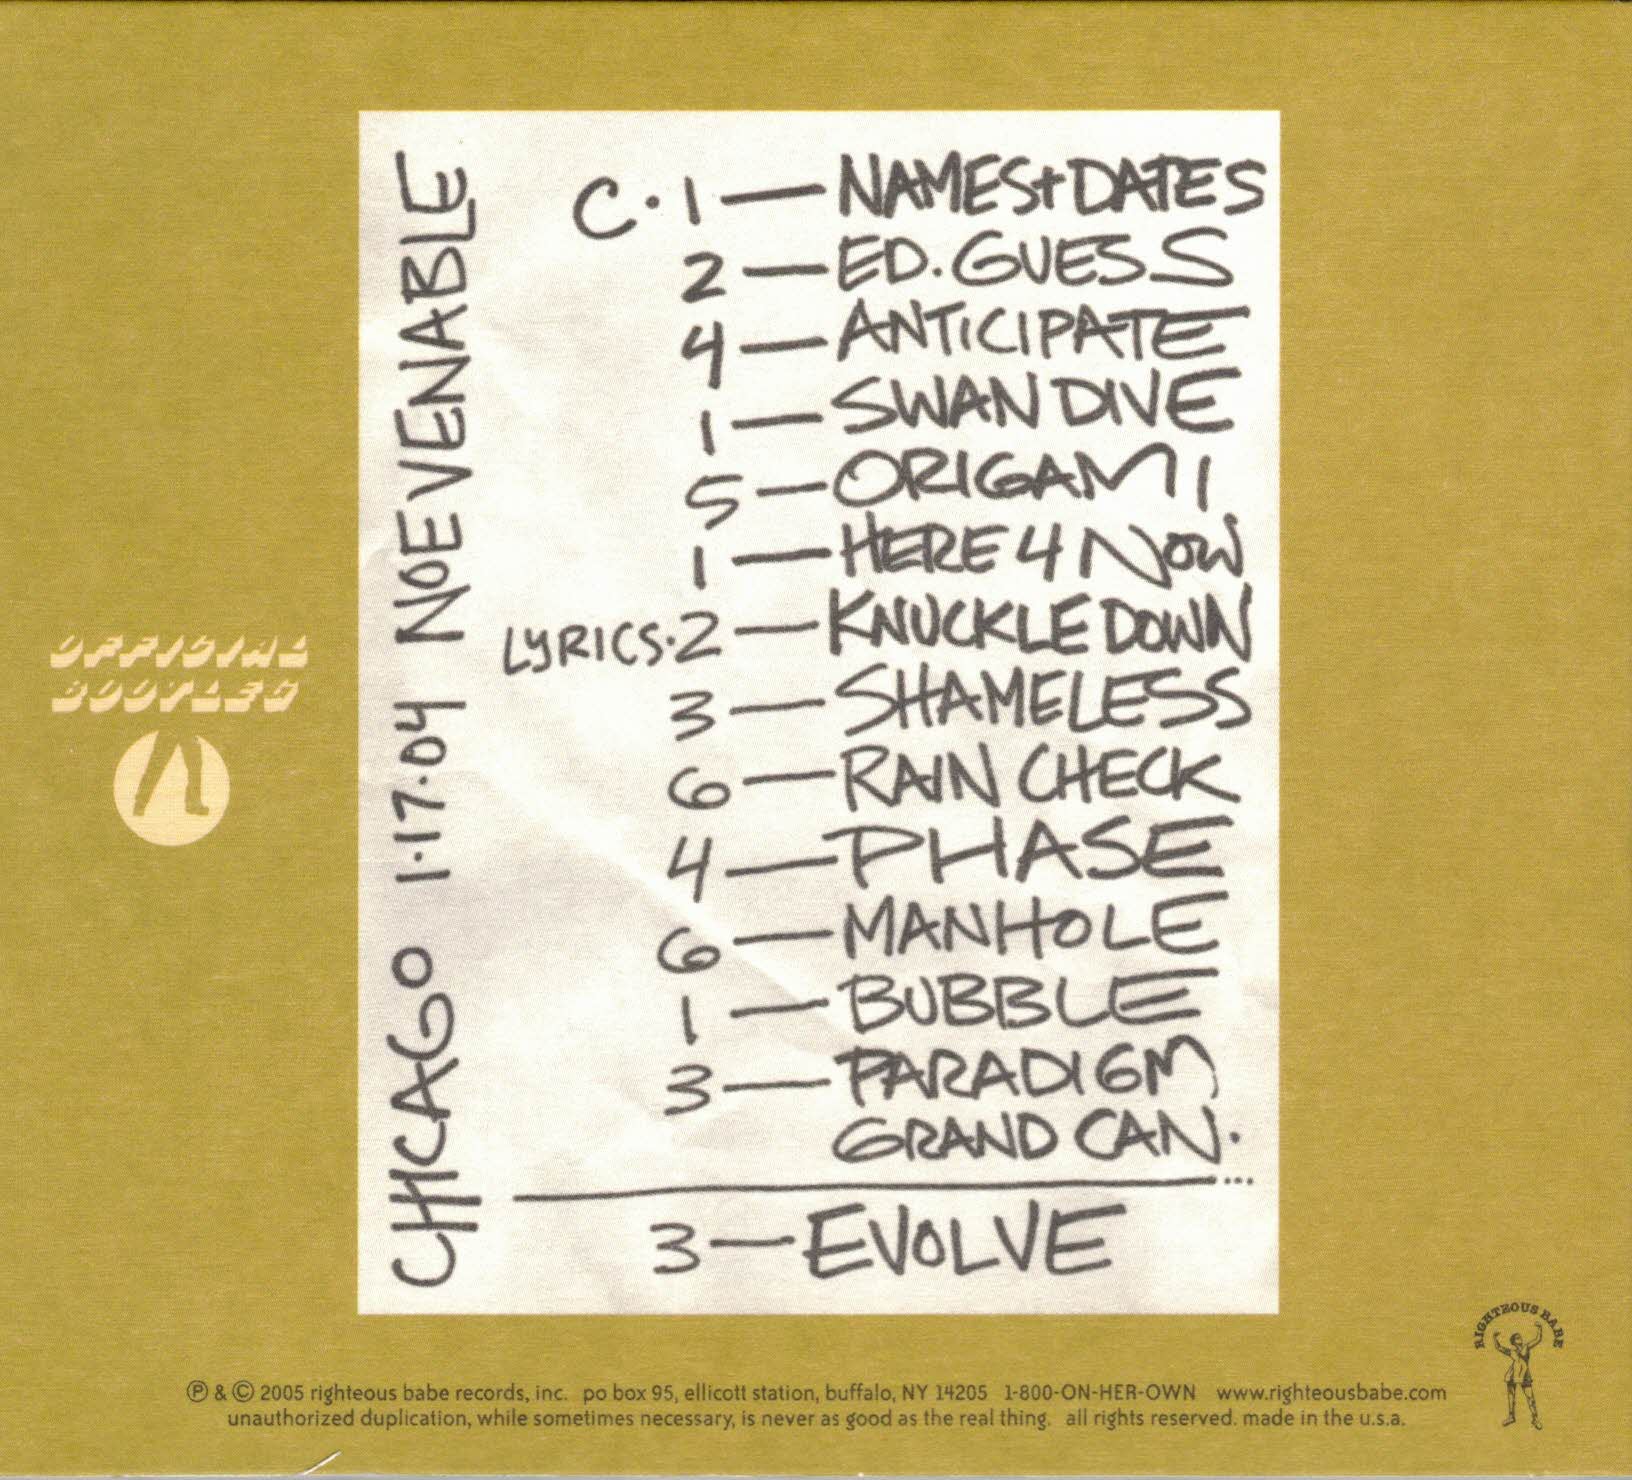 CHICAGO 1·17·04 NOE VENABLE
C·1 — NAMES+DATES
2 — ED. GUESS
4 — ANTICIPATE
1 — SWAN DIVE
5 — ORIGAMI
1 — HERE 4 NOW
LYRICS·2 — KNUCKLE DOWN
3 — SHAMELESS
6 — RAIN CHECK
4 — PHASE
6 — MANHOLE
1 — BUBBLE
3 — PARADIGM
GRAND CAN.
...
3 — EVOLVE
OFFICIAL
BOOTLEG
RIGHTEOUS BABE
℗ & © 2005 righteous babe records, inc. po box 95, ellicott station, buffalo, NY 14205 1-800-ON-HER-OWN www.righteousbabe.com
unauthorized duplication, while sometimes necessary, is never as good as the real thing. all rights reserved. made in the u.s.a.